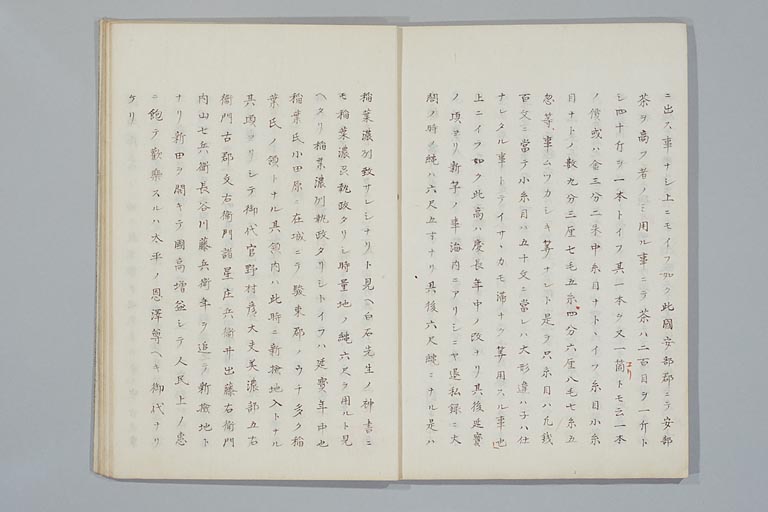 ニ出ス事ナシ上ニモイフ如ク此國安部郡ニテ安部
茶ヲ商フ者ノミ用ル事ニテ茶ハ二百目ヲ一斤ト
シ四十斤ヲ一本トイフ其一本ヲ又一箇トモ云一本
ノ價或ハ金三分二朱中糸目ナトヽイフ糸目小糸
目ナトノ數九分三厘七毛五糸四分六厘八毛七糸五
忽等ノ事ムツカシキ算ナレト是ヲ只糸目ハ凡我
百文ニ當テ小糸目ハ五十文ニ當レハ大形違ハ子ハ仕
ナレタル事トテイサヽカモ滞ナク算用スル事也
上ニイフ如ク此高ハ慶長年中ノ改ナリ其後延寳
ノ頃ヨリ新竿ノ事海内ニアリシニヤ退私録ニ大
閤ノ時ノ縄ハ六尺五寸ナリ其後六尺縄ニナル是ハ
稲葉濃州致サレシナリト見ヘ白石先生ノ紳書ニ
モ稲葉濃州執政タリシ時量地ノ縄六尺ヲ用ルト見
ヘタリ稲葉濃州執政タリシトイフハ延寳年中也
稲葉氏小田原ニ在城ニテ駿東郡ノウチ多ク稲
葉氏ノ領トナル其領内ハ此時ニ新検地入トナル
其頃ヨリシテ御代官野村彦大夫美濃部五右
衛門古郡文右衛門諸星庄兵衛井出藤右衛門
内山七兵衛長谷川藤兵衛年ヲ追テ新検地ト
ナリ新田ヲ開キテ國高増益シテ人民上ノ恵
ニ飽テ歡樂スルハ太平ノ恩澤尊ヘキ御代ナリ
ケリ